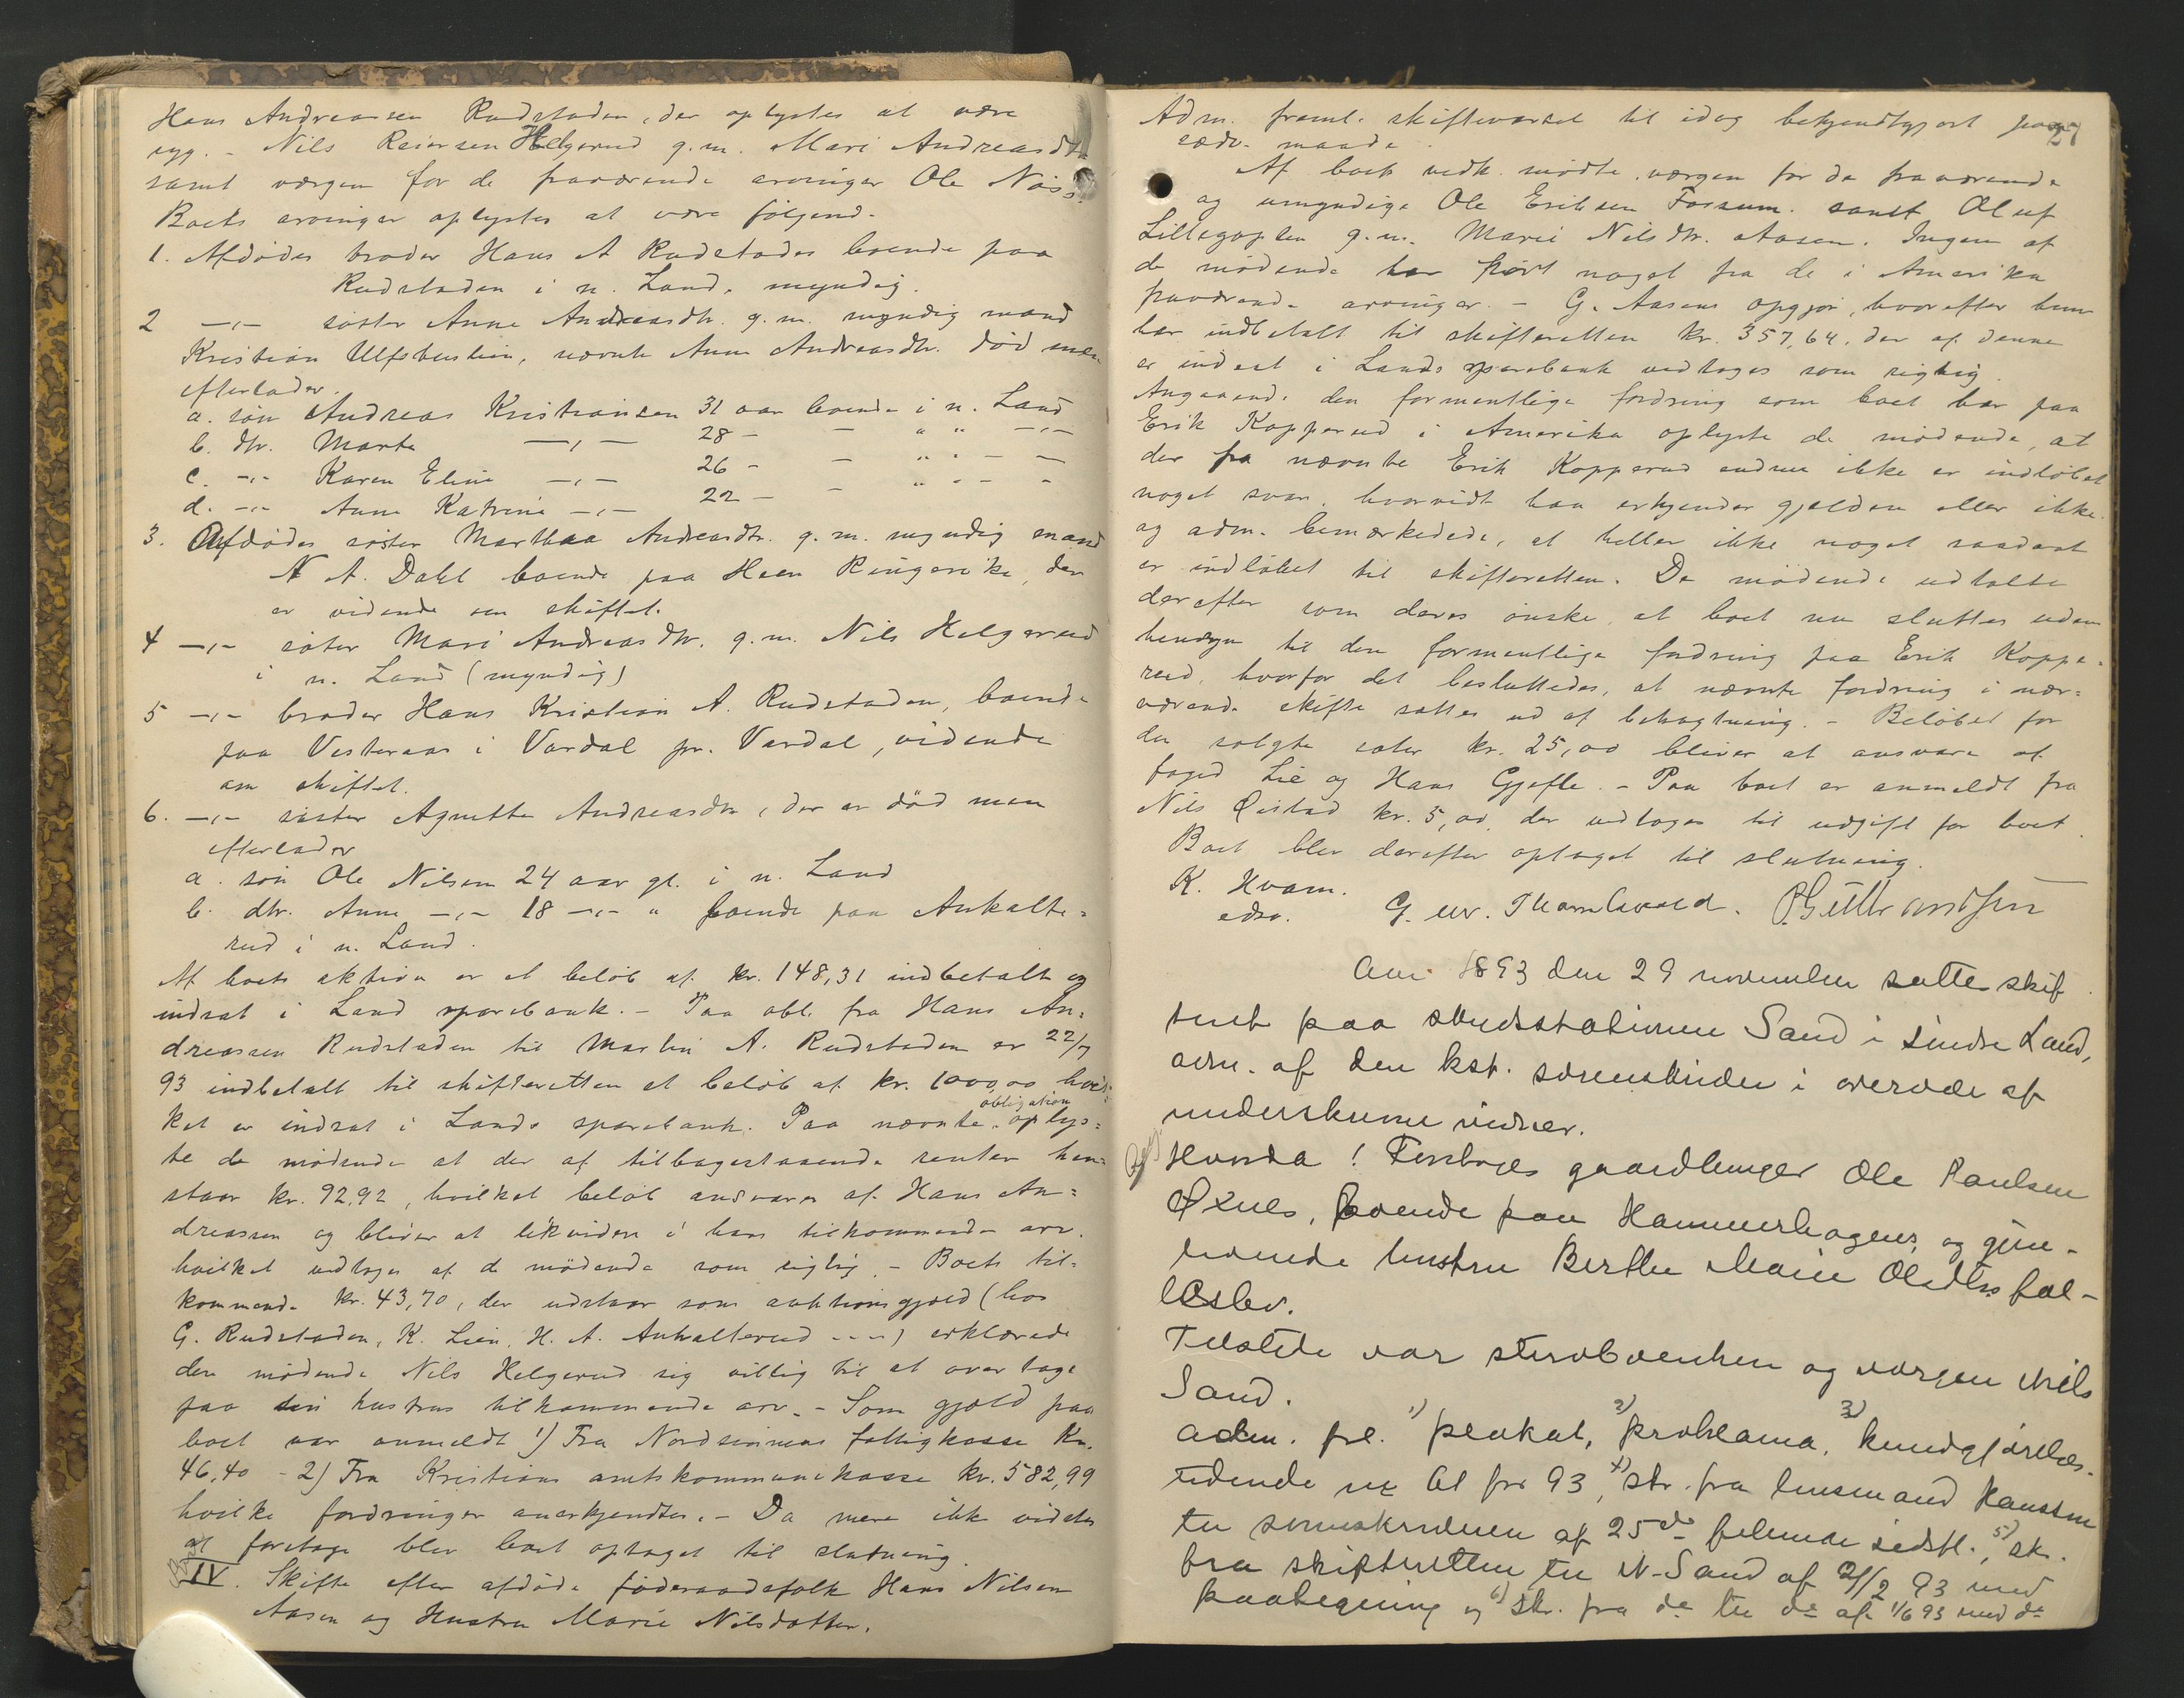 Hans Andreassen Rudstaden, der oplystes at være
syg. - Nils Reiersen Helgerud g.m. Mari Andreasdtr
samt værgen for de fraværende arvinger Ole Nøss.
Boets arvinger oplystes at være følgend.
1. Afdødes broder Hans A Rudstaden boende paa
Rudstaden i n. Land, myndig.
2 -,- søster Anne Andreasdtr. g.m. myndig mand
Kristian Ulfsbustien, nævnte Anne Andreasdtr. død men
efterlader.
a. søn Andreas Kristiansen 31 aar boende i n. Land
b. dtr. Marte -,- 28 - - " " -,-
c. -,- Karen Eline -,- 26 - - " " - -
d. -,- Anne Katrine -,- 22 - - " " - -
3. Afdødes søster Marthaa Andreasdtr. g.m. myndig mand
N A. Dahl boende paa Heen Ringerike, der
er vidende om skiftet.
4 -,- søster Mari Andreasdtr. g.m. Nils Helgerud
i n. Land (myndig)
5 -,- broder Hans Kristian A. Rudstaden, boende
paa Vesteraas i Vardal pr. Vardal, vidende
om skiftet.
6. -,- søster Agnette Andreasdtr, der er død men
efterlader
a. søn Ole Nilsen 24 aar gl. i n. Land
b. dtr. Anne -,- 18 -,- " boende paa Ankalte=
rud i n. Land.
Af boets aktiva er et beløb af kr. 148,31 indbetalt og
indsat i Land sparebank. - Paa obl. fra Hans An=
dreassen Rudstaden til Martin A. Rudstaden er 22/7
93 indbetalt til skifteretten et beløb af kr. 1000,00 hvil=
ket er indsat i Lands sparebank. Paa nævnte obligation oplys=
te de mødende at der af tilbagestaaende renter hen=
staar kr. 92,92, hvilket beløb ansvares af Hans An=
dreassen og bliver at likvidere i hans tilkommende arv.
hvilket vedtoges af de mødende som rigtig. - Boets til=
kommende kr. 43,70, der udstaar som auktionsgjæld (hos
G. Rudstaden, K. Lien, H. A. Ankalterud ---) erklærede
den mødende Nils Helgerud sig villig til at overtage
paa sin hustrus tilkommende arv. - Som gjæld paa
boet var anmeldt 1) Fra Nordsinnens fattigkasse Kr.
46,40 - 2) Fra Kristians amtskommunekasse kr. 582,99
hvilke fordringer anerkjendtes. - Da mere ikke vidstes
at foretage blev boet optaget til slutning.
IV. Skifte efter afdøde føderaadsfolk Hans Nilsen
Aasen og Hustru Marie Nilsdatter.
27
Adm. freml. skiftevarsel til idag bekjendtgjort paa
sædv. maade.
Af boets vedk. mødte værgen for de fraværende
og umyndige Ole Eriksen Fossum. samt Oluf
Lillegoplen g.m. Marie Nilsdtr. Aasen. Ingen af
de mødende har hørt noget fra de i Amerika
fraværende arvinger. - G. Aasens opgjør, hvorefter han
har indbetalt til skifteretten kr. 357,64, der af denne
er indsat i Lands sparebank vedtoges som rigtig.
Angaaende den formentlige fordring som boet har paa
Erik Kopperud i Amerika oplyste de mødende, at
der fra nævnte Erik Kopperud endnu ikke er indløbet
noget svar, hvorvidt han erkjender gjælden eller ikke.
og adm. bemærkedede, at heller ikke noget saadant
er indløbet til skifteretten. De mødende udtalte
derefter som deres ønske, at boet nu sluttes uden
hensyn til den formentlige fordring paa Erik Koppe=
rud, hvorfor det besluttedes, at nævnte fordring i nær=
værende skifte sættes ud af betragtning. - Beløbet for
den solgte sæter kr. 25,00 bliver at ansvare af
foged Lie og Hans Gjefle. - Paa boet er anmeldt fra
Nils Øistad kr. 5,00, der vedtoges til udgift for boet.
Boet blev derefter optaget til slutning.
K. Hvam.
edsv. G. M. Thornkvald. P. Gulbrandsen
Aar 1893 den 29 november sattes skif
teret paa skydsstationen Sand i søndre Land,
adm. af den kst. sorenskriver i overvær af
underskrevne vidner.
Hvorda! Foretoges gaardbruger Ole Paulsen
Øxnes, boende paa Hammerhagen, og gjen-
levende hustru Berthe Marie Olsdtrs fæl-
lesbo.
Tilstede var stervboenken og værgen Nils
Sand.
adm. frl. 1) plakat, 2) proklama, 3) kundgjørelses-
tidende nr 61 for 93, 4) skr. fra lensmand Hanssen
til sorenskriveren af 25de februar sidstl., 5) skr.
fra skifteretten til N. Sand af 21/2 93 med
paategning og 6) skr. fra do til do af 1/6 93 med do